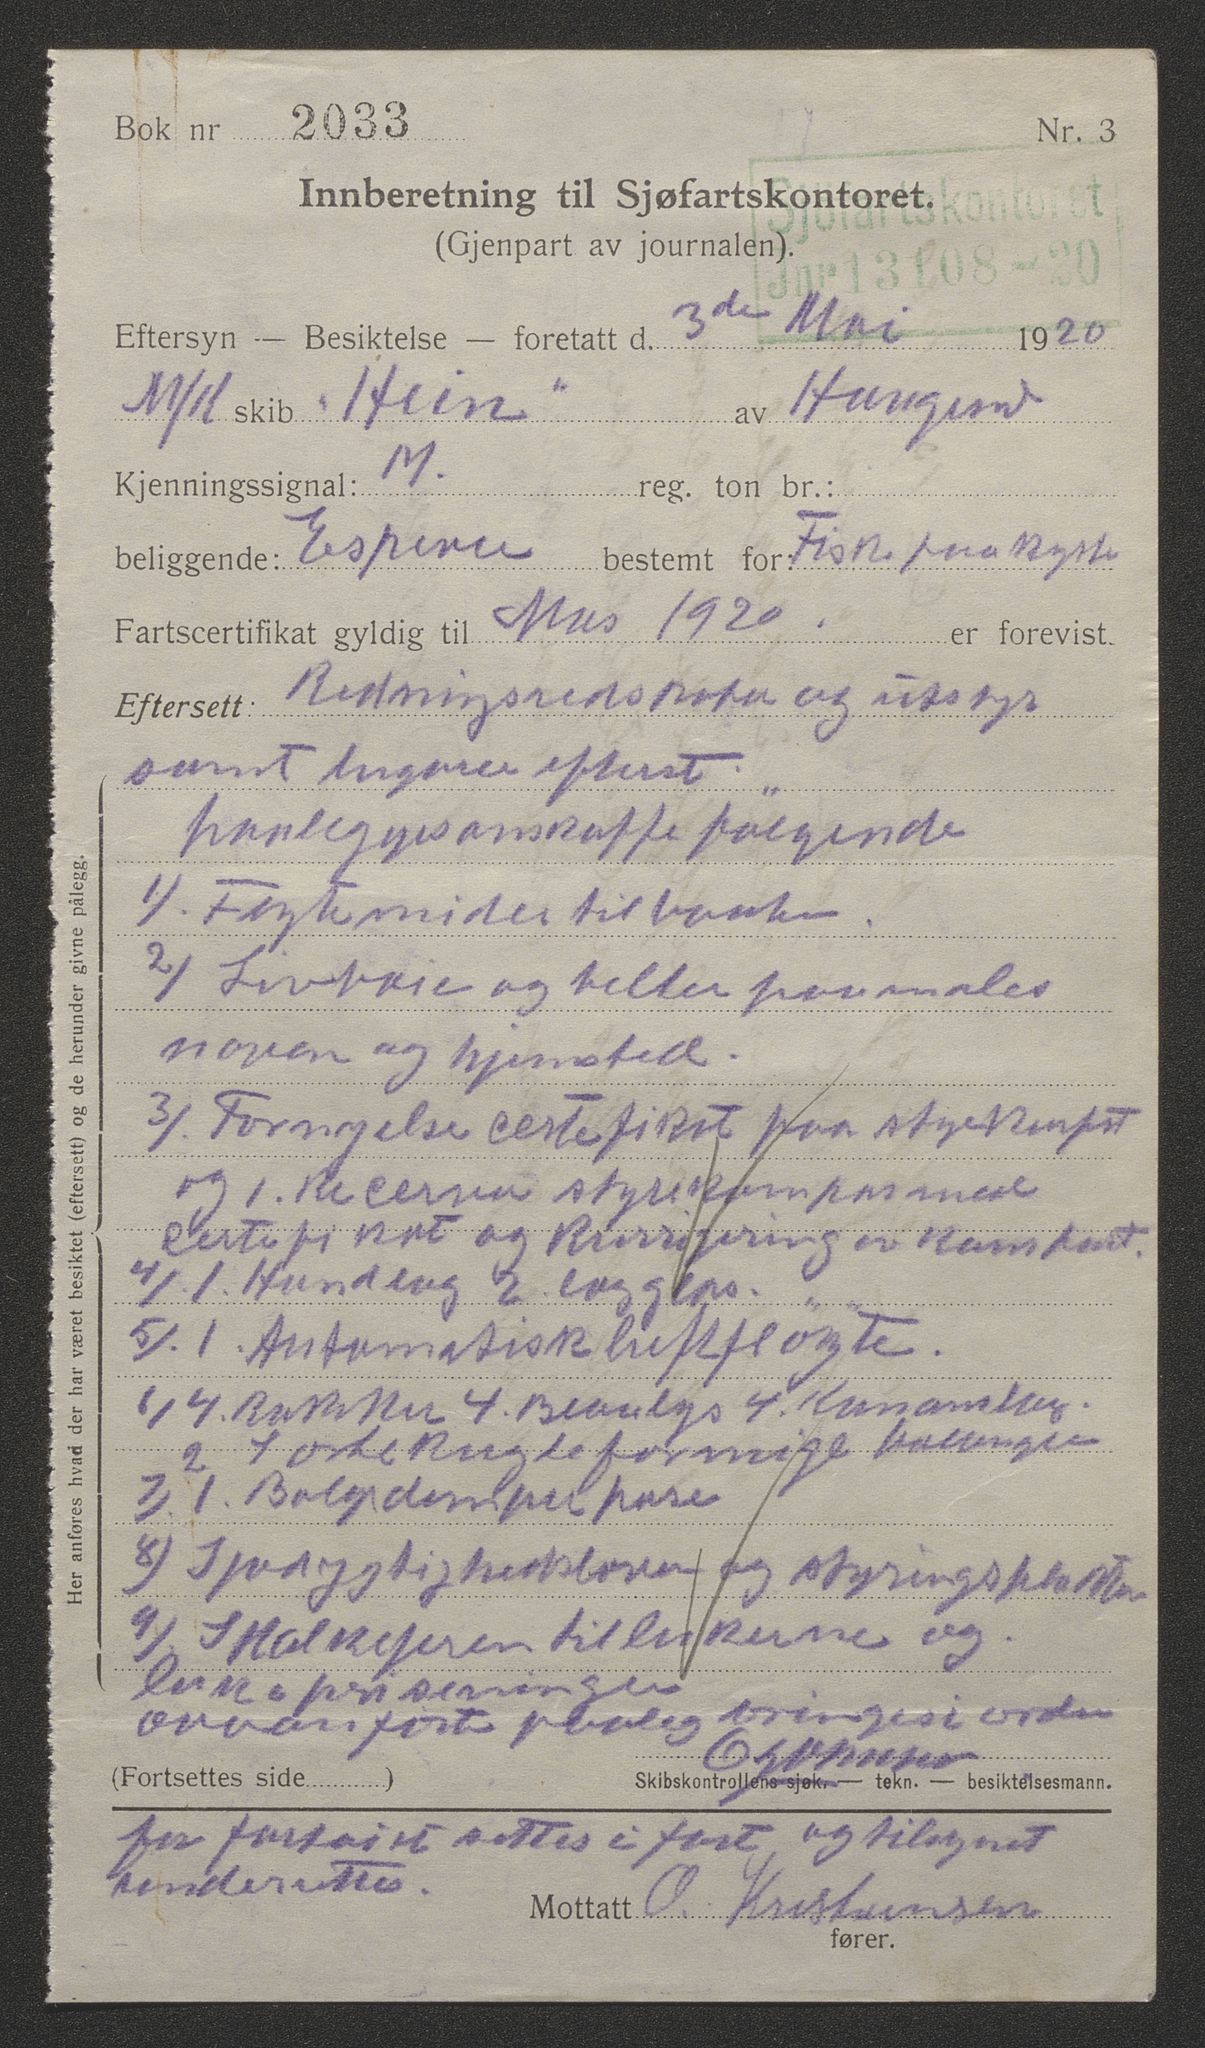 Bok nr 2033
Nr. 3
Sjøfartskontoret
Jnr 13108-20
Innberetning til Sjøfartskontoret.
(Gjenpart av journalen).
Eftersyn — Besiktelse — foretatt d. 3de Mai 1920
M/K skib "Hein" av Haugesund
Kjenningssignal: M. reg. ton br.:
beliggende: Espevær bestemt for: Fiske paa kyste
Fartscertifikat gyldig til Mars 1920. er forevist.
Eftersett: Redningsredskaper og utstyr
samt lugarer efterset.
paaleggesanskaffe følgende
1). Flytemidler til baaten.
2) Livbøie og belter paamales
navn og hjemsted.
3). Fornyelse certefikat paa
og 1. Recerve styrekompas med
certefikat og av
4). 1. Handlog 2. logglas. " "
5). 1. Automatisk luftfløyte.
6) 4. Raketter 4. Blaalys 4. Kanonslag.
2 Sorte Kugleformige
7). 1. Bølgedemper pose
8) Sjødygtighedsloven og styringsplakaten
9). Skalkejeren til lukerne og
luke preseninger
ovvanførte paaleg bringes i orden
(Fortsettes side )
Skibskontrollens sjøk. — tekn. — besiktelsesmann.
før fartøiet settes i fart og tilsynet
underrettes.
Mottatt O. Kristiansen
fører.
Her anføres hvad der har været besiktet (eftersett) og de herunder givne pålegg.